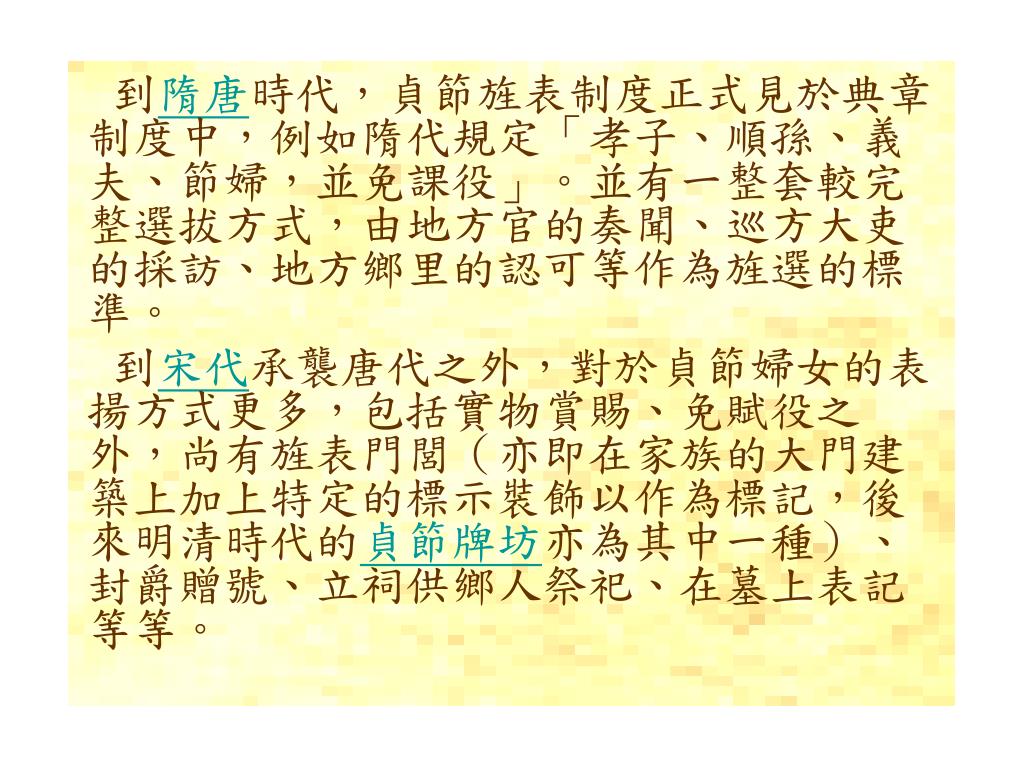 到隋唐時代，貞節旌表制度正式見於典章
制度中，例如隋代規定「孝子、順孫、義
夫、節婦，並免課役」。並有一整套較完
整選拔方式，由地方官的奏聞、巡方大吏
的採訪、地方鄉里的認可等作為旌選的標
準。
到宋代承襲唐代之外，對於貞節婦女的表
揚方式更多，包括實物賞賜、免賦役之
外，尚有旌表門閭（亦即在家族的大門建
築上加上特定的標示裝飾以作為標記，後
來明清時代的貞節牌坊亦為其中一種）、
封爵贈號、立祠供鄉人祭祀、在墓上表記
等等。